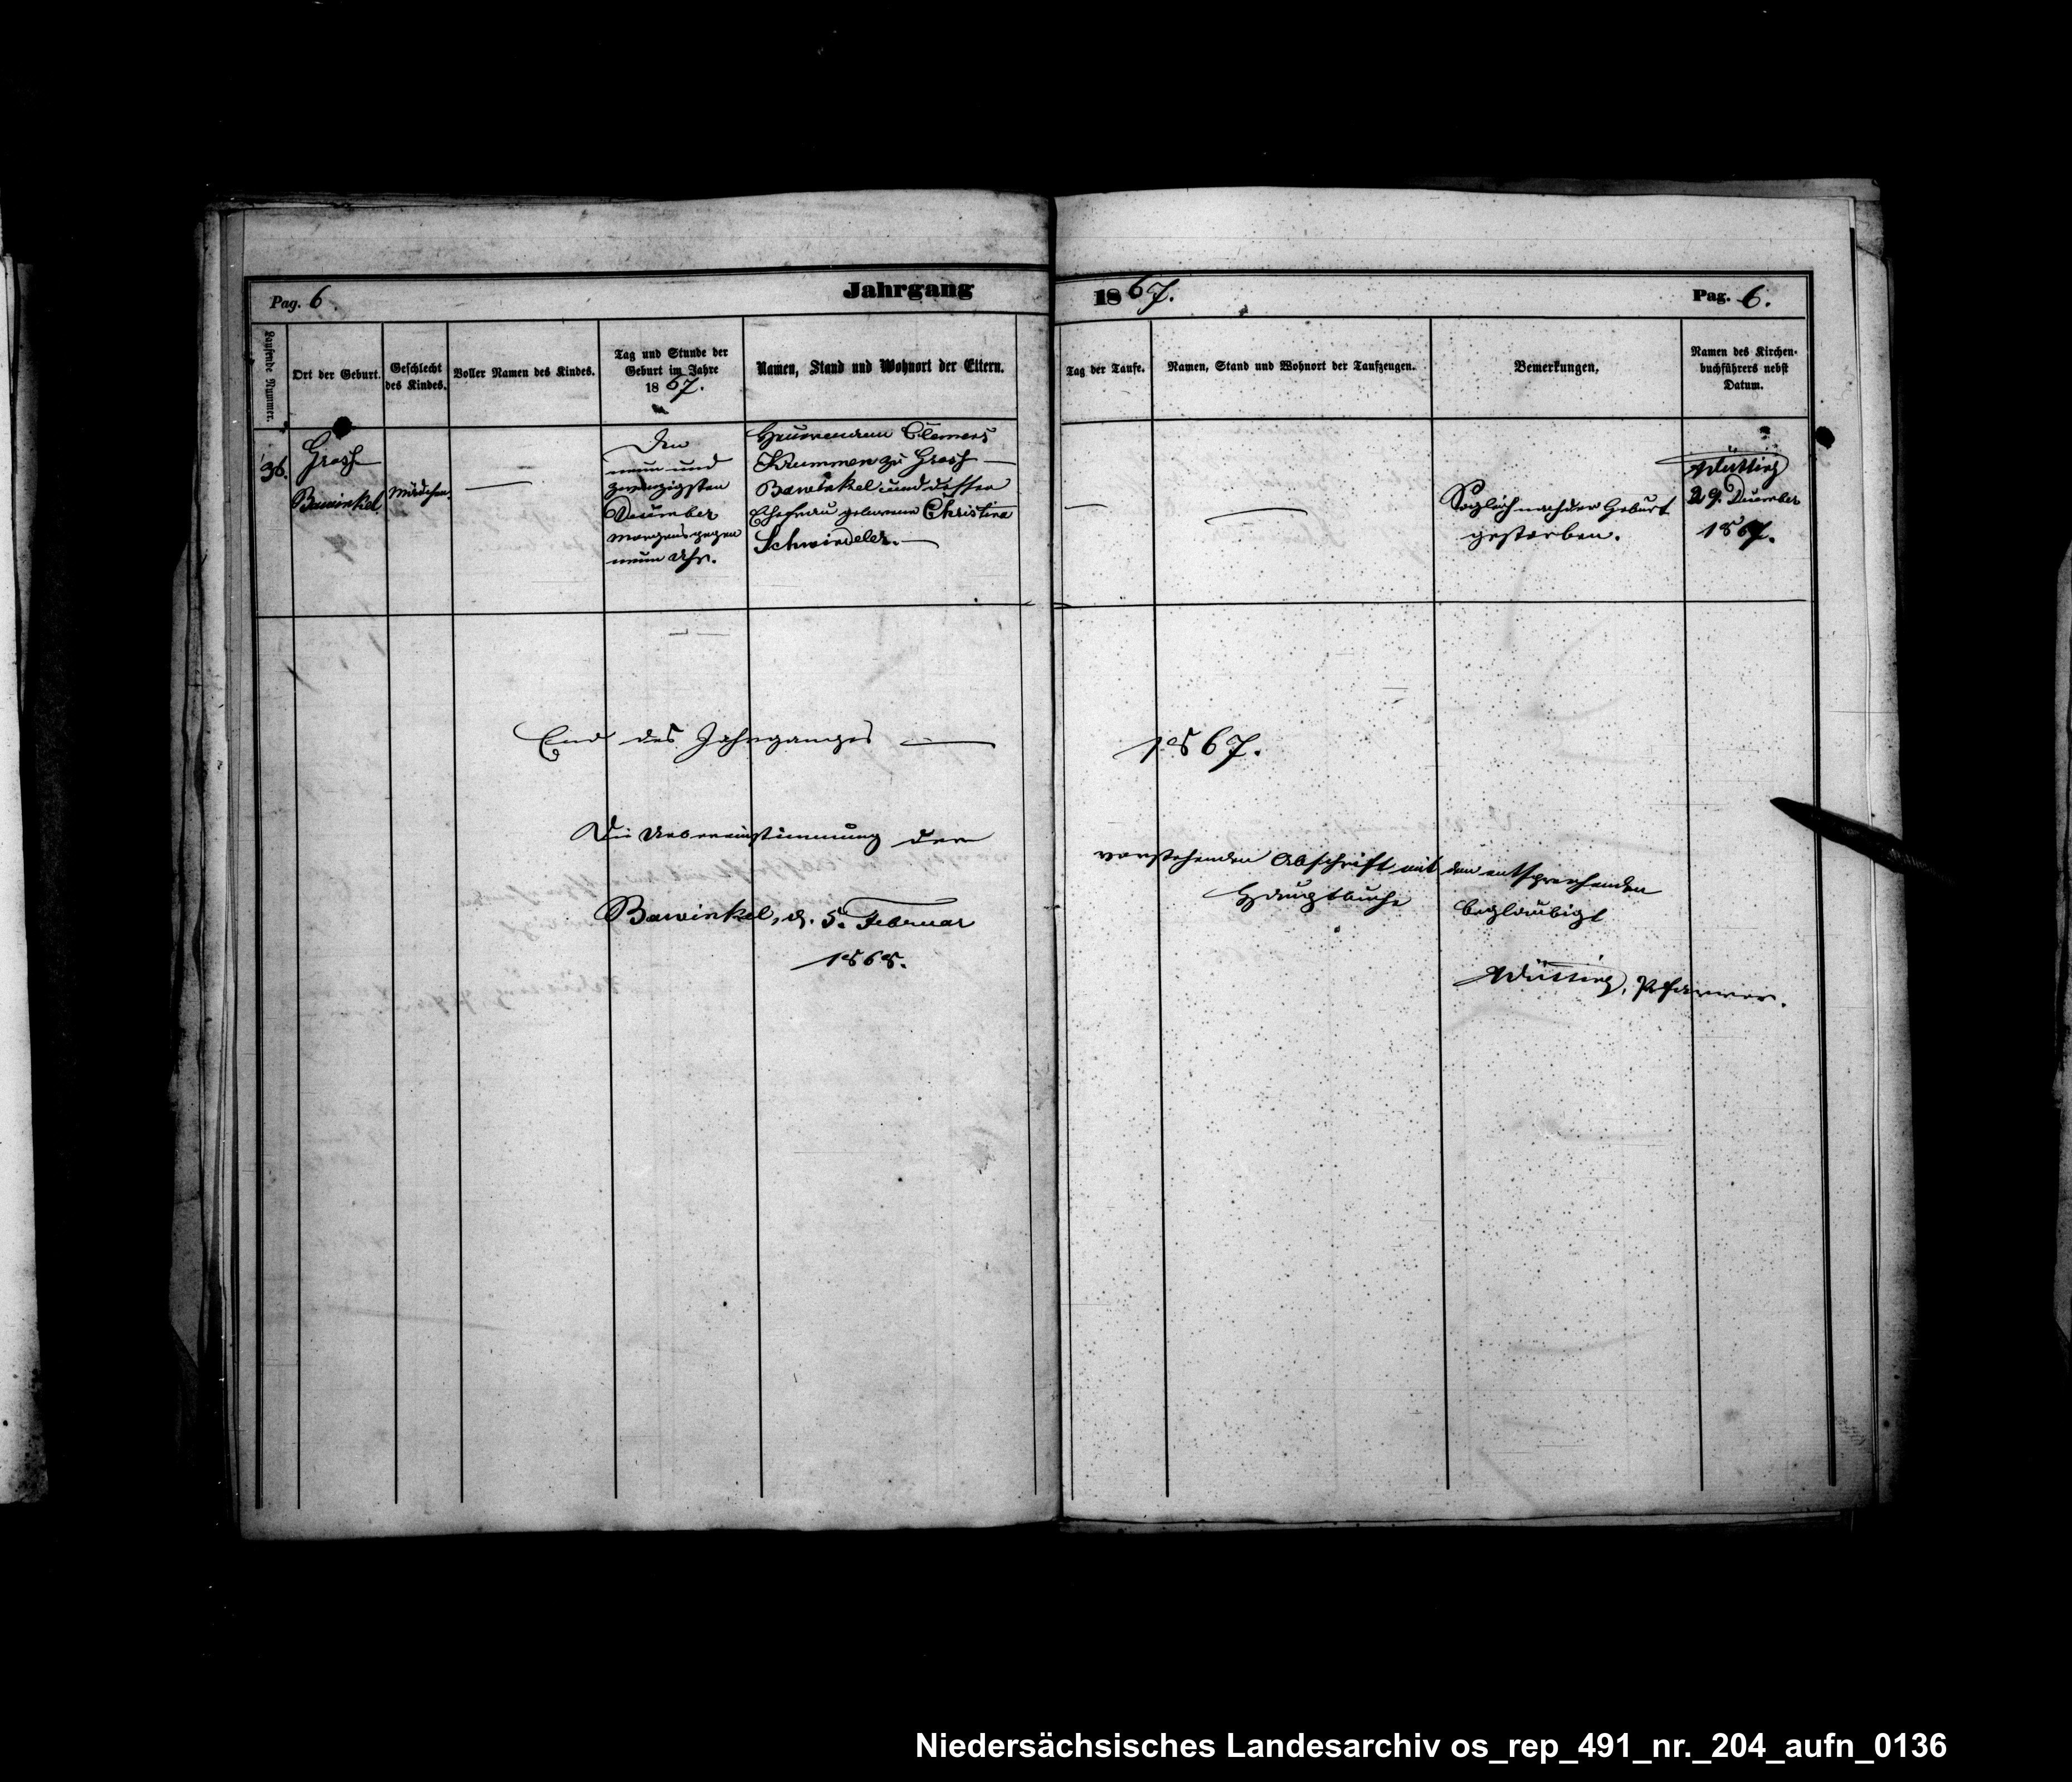 Pag. 6.
Jahrgang
1867.
Pag. 6.
Laufende Nummer.
Ort der Geburt.
Geschlecht
des Kindes.
Voller Namen des Kindes.
Tag und Stunde der
Geburt im Jahre
1867.
Namen, Stand und Wohnort der Eltern.
Tag der Taufe.
Namen, Stand und Wohnort der Taufzeugen.
Bemerkungen.
Namen des Kirchen-
buchführers nebst
Datum.
36.
Gross
Bawinkel
Mädchen.
—
Den
neun und
zwanzigsten
December
morgens gegen
neun Uhr.
Heuermann Clemens
Krummen zu Gross—
Bawinkel und dessen
Ehefrau geborene Christina
Schwindeler.—
—
—
Sogleich nach der Geburt
gestorben.
29. December
1867.
End des Jahrganges —
1867.
Die Uebereinstimmung der
vorstehenden Abschrift mit dem entsprechenden
Hauptbuche beglaubigt
Bawinkel, d. 5. Februar
1868.
Pfarrer.
Niedersächsisches Landesarchiv os_rep_491_nr._204_aufn_0136